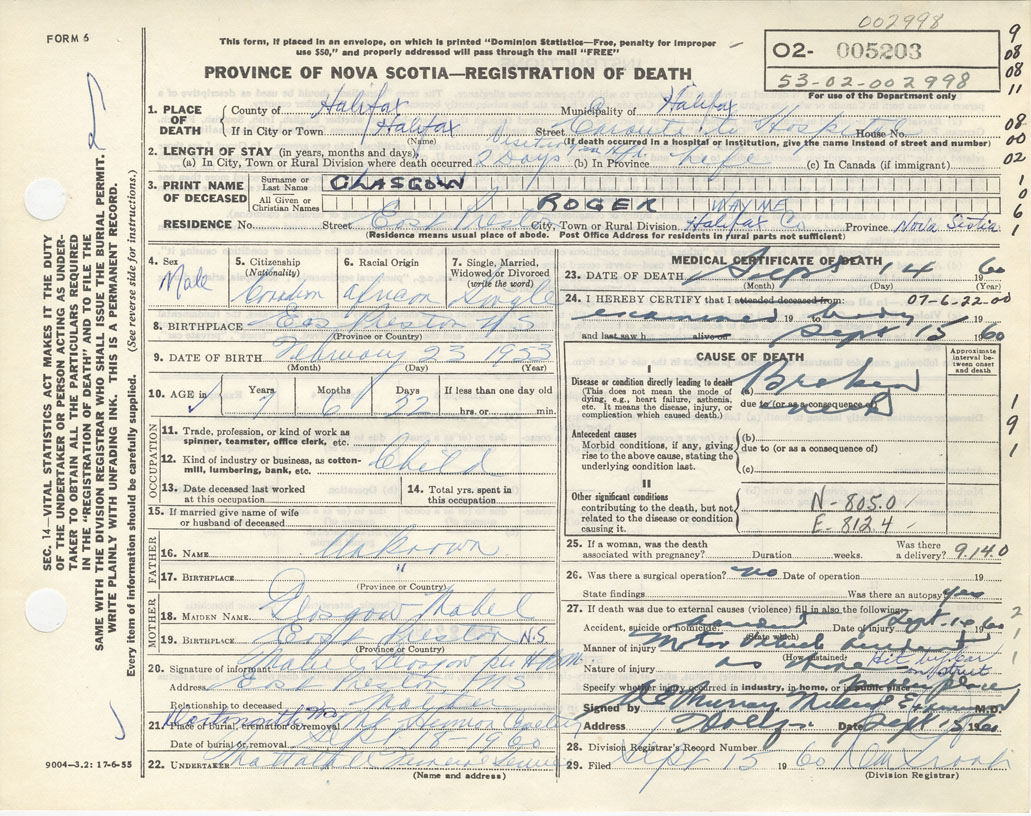 002998
FORM 6
This form, if placed in an envelope, on which is printed "Dominion Statistics—Free, penalty for improper
use $50," and properly addressed will pass through the mail "FREE"
02- 005203
53-02-002998
For use of the Department only
PROVINCE OF NOVA SCOTIA—REGISTRATION OF DEATH
9
08
08
11
08
00
02
1
1
6
1
1
9
1
2
1
1
SEC. 14—VITAL STATISTICS ACT MAKES IT THE DUTY
OF THE UNDERTAKER OR PERSON ACTING AS UNDER-
TAKER TO OBTAIN ALL THE PARTICULARS REQUIRED
IN THE "REGISTRATION OF DEATH" AND TO FILE THE
SAME WITH THE DIVISION REGISTRAR WHO SHALL ISSUE THE BURIAL PERMIT.
WRITE PLAINLY WITH UNFADING INK. THIS IS A PERMANENT RECORD.
Every item of information should be carefully supplied. (See reverse side for instructions.)
1. PLACE OF DEATH
County of Halifax Municipality of Halifax
If in City or Town Halifax Street Hospital House No.
(Name) (If death occurred in a hospital or institution, give the name instead of street and number)
2. LENGTH OF STAY (in years, months and days)
(a) In City, Town or Rural Division where death occurred 2 Days (b) In Province Life (c) In Canada (if immigrant)
3. PRINT NAME OF DECEASED
Surname or Last Name GLASGOW
All Given or Christian Names ROGER WAYNE
RESIDENCE No. Street East Preston City, Town or Rural Division Halifax Co Province Nova Scotia
(Residence means usual place of abode. Post Office Address for residents in rural parts not sufficient)
4. Sex Male
5. Citizenship (Nationality) Canadian
6. Racial Origin African
7. Single, Married, Widowed or Divorced (write the word) Single
8. BIRTHPLACE East Preston NS
(Province or Country)
9. DATE OF BIRTH February 23 1953
(Month) (Day) (Year)
10. AGE in Years 7 Months 6 Days 22 If less than one day old hrs. or min.
OCCUPATION
11. Trade, profession, or kind of work as
spinner, teamster, office clerk, etc.
12. Kind of industry or business, as cotton-
mill, lumbering, bank, etc. Child
13. Date deceased last worked at this occupation
14. Total yrs. spent in this occupation
15. If married give name of wife
or husband of deceased
FATHER
16. NAME Unknown
17. BIRTHPLACE "
(Province or Country)
MOTHER
18. MAIDEN NAME Glasgow Mabel
19. BIRTHPLACE East Preston N.S.
(Province or Country)
20. Signature of informant Mabel Glasgow per
Address East Preston NS
Relationship to deceased Mother
21. Place of burial, cremation or removal
Date of burial or removal Sept 18-1960
22. UNDERTAKER Funeral Service
(Name and address)
9004—3.2: 17-6-55
MEDICAL CERTIFICATE OF DEATH
23. DATE OF DEATH Sept 14 1960
(Month) (Day)
24. I HEREBY CERTIFY that I attended deceased from: 07-6-22-00
examined 19 to body
and last saw h alive on Sept 15 19 60
CAUSE OF DEATH
Approximate interval between onset and death
I
Disease or condition directly leading to death
(This does not mean the mode of
dying, e.g., heart failure, asthenia,
etc. It means the disease, injury, or
complication which caused death.)
(a) Broken neck
due to (or as a consequence of)
Antecedent causes
Morbid conditions, if any, giving
rise to the above cause, stating the
underlying condition last.
(b)
due to (or as a consequence of)
(c)
II
Other significant conditions
contributing to the death, but not
related to the disease or condition
causing it.
N-805.0
E-812.4
25. If a woman, was the death
associated with pregnancy? Duration weeks. Was there a delivery? 9.14.0
26. Was there a surgical operation? no Date of operation 19
State findings Was there an autopsy yes
27. If death was due to external causes (violence) fill in also the following:
Accident, suicide or homicide accident Date of injury Sept. 14 1960
(State which)
Manner of injury Motor Vehicle Accident
(How sustained) Hit by car on street
Nature of injury as above
Specify whether injury occurred in industry, in home, or in public place public place
Signed by Murray, Medical Examiner M.D.
Address Date Sept 15 1960
28. Division Registrar's Record Number
29. Filed Sept 15 19 60
(Division Registrar)